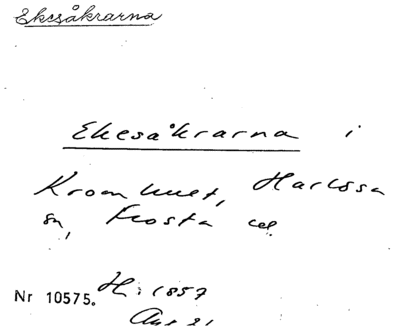 Ekesåkrarna
Ekesåkrarna i
Kroonhult, Harlösa
sn, Frosta
Nr 10575. H: 1857